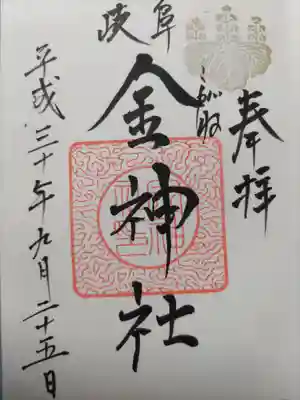 奉拝
岐阜
金神社
平成三十年九月二十五日